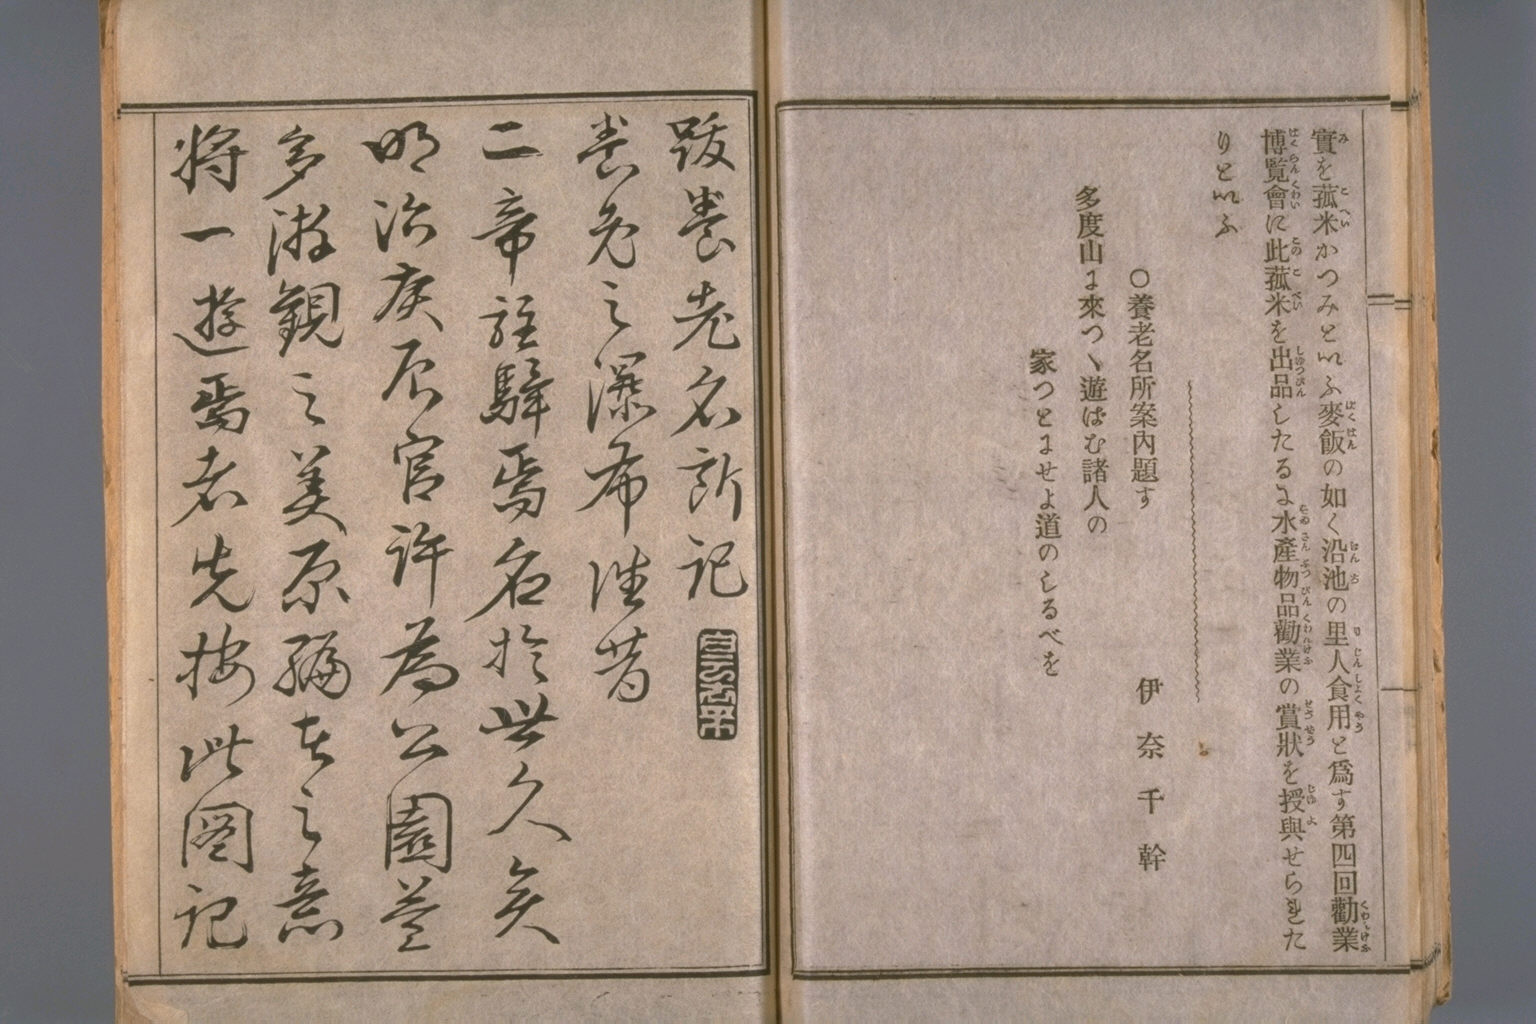 實を菰米かつみといふ麥飯の如く沿池の里人食用と爲す第四回勸業
博覧會に此菰米を出品したるに水産物品勸業の賞狀を授與せられた
りといふ
○養老名所案内題す
伊奈千幹
多度山に來つゝ遊ばむ諸人の
家つとにせよ道のしるべを
跋養老名所記
養老之瀑布往昔
二帝註驛焉名於世久矣
明治庚辰官許為公園蓋
多游觀之美原編者之意
將一遊焉者先按此圖記